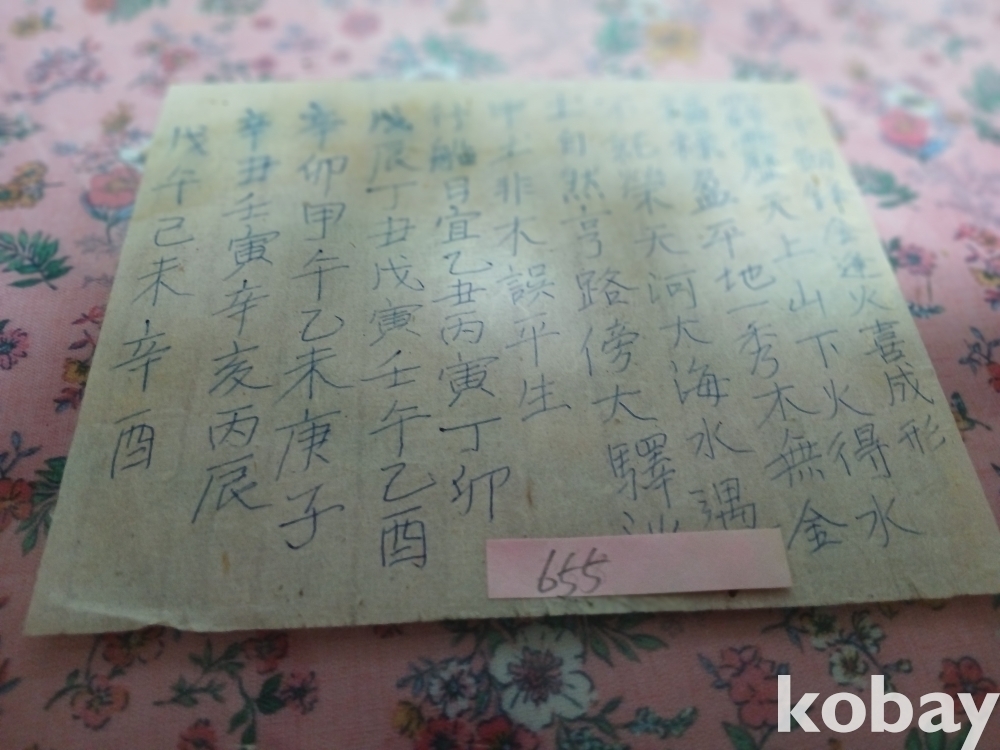 金逢火喜成形
天上山下火得水
福祿盈平地一秀木無金
不能榮天河大海水遇
土自然亨路傍大驛
土非木誤平生
行船日宜乙丑丙寅丁卯
戊辰丁丑戊寅壬午乙酉
辛卯甲午乙未庚子
辛丑壬寅辛亥丙辰
戊午己未辛酉
655
kobay